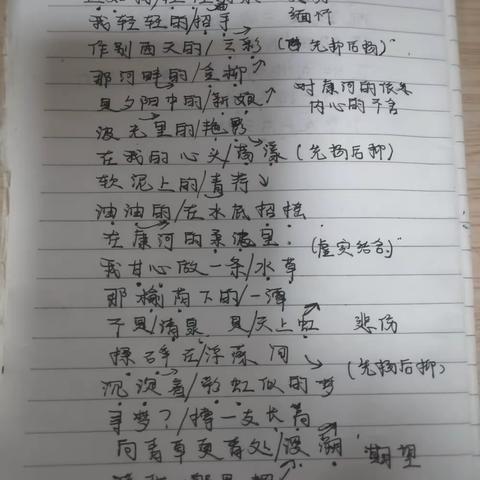 我轻轻的/招手 缅怀
作别西天的/云彩 (先抑后扬)
那河畔的/金柳
是夕阳中的/新娘 对康河的依恋
波光里的/艳影 内心的
在我的心头/荡漾 (先扬后抑)
软泥上的/青荇
油油的/在水底招摇
在康河的柔波里 (虚实结合)
我甘心做一条/水草
那榆荫下的/一潭
不是/清泉 是/天上虹 悲伤
揉碎在/浮藻间
沉淀着/彩虹似的梦 (先扬后抑)
寻梦?/撑一支长篙
向青草更青处/漫溯 期望